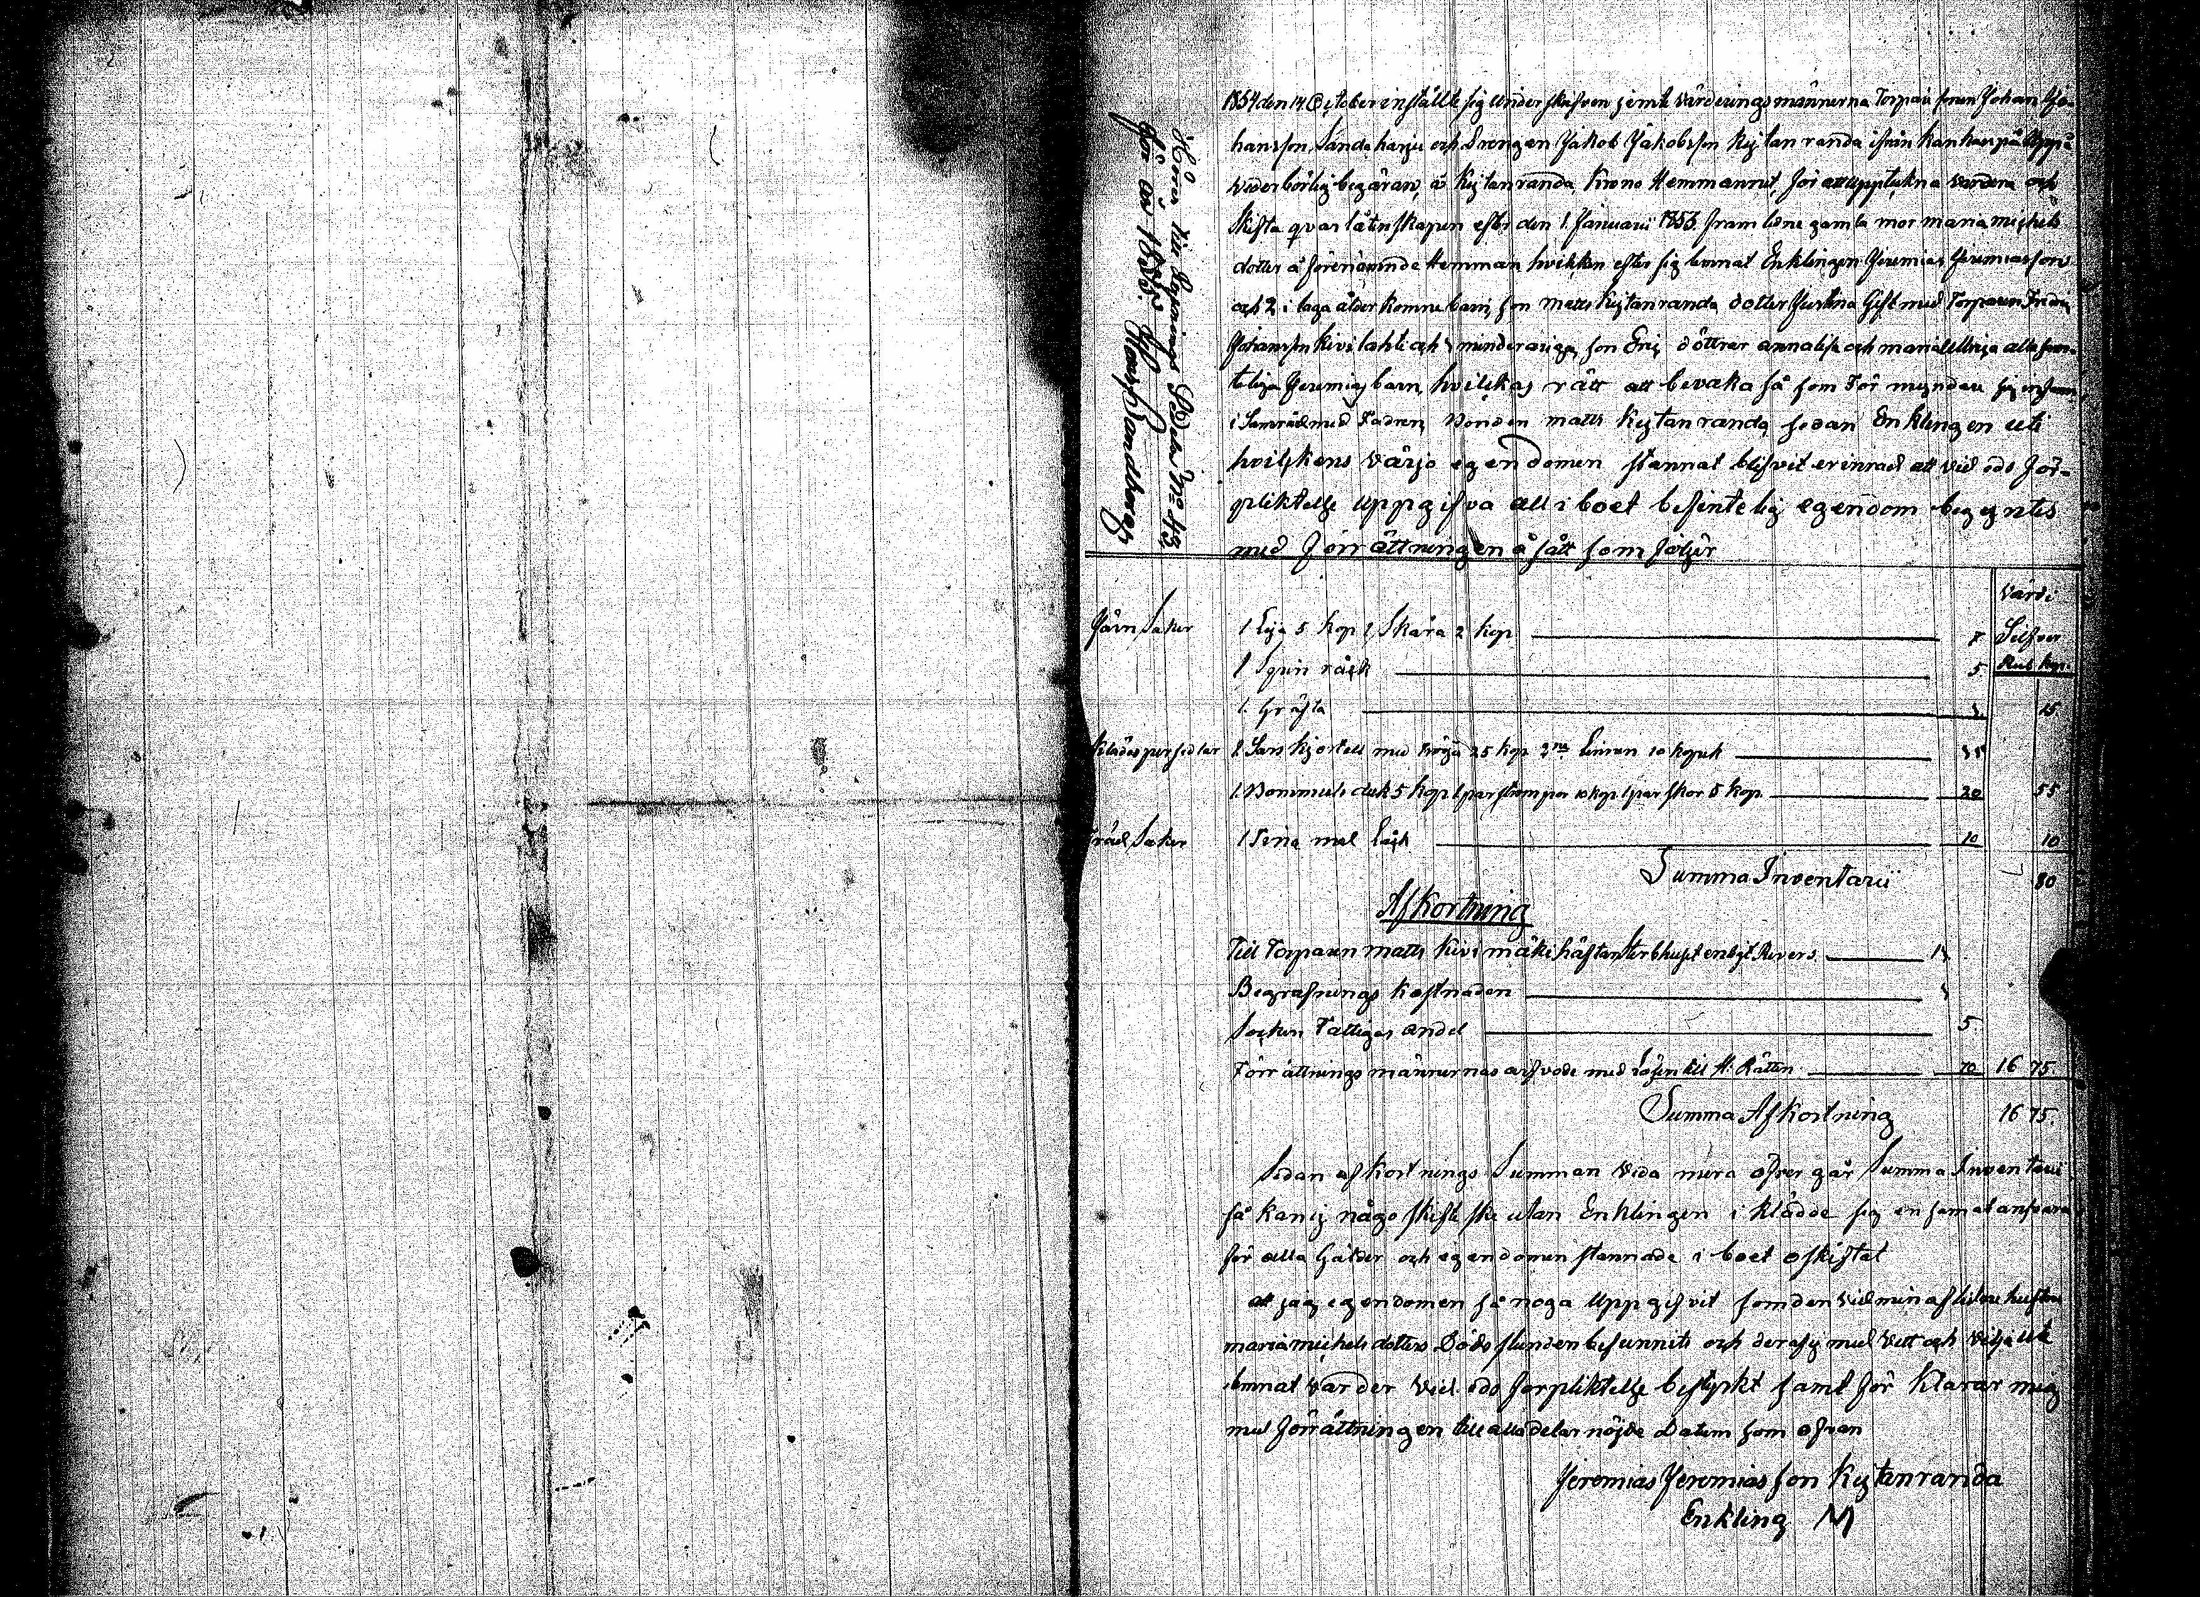 1854 den 14 October inställte sig Underskrifven jemte Värderingsmännerna Torpare sonen Johan Jo-
hansson Sandaharju och Drengen Jakob Jakobsson Kytanranda ifrån på
vederbörlig begäran, å Kytanranda Krono Hemmanet, för att Uppteckna värdera och
Skifta qvarlåtenskapen efter den 1. Januarii 1853. framledne gamla mor maria michels
dotter å förenämnde Hemman hvilken efter sig lemnat Enklingen Jeremias Jeremiasson
och 2 i laga ålder komne barn, son matts Kytanranda dotter Justina Gift med Torparen
Johansson Kivilahti och minderåriga, son Eric döttrar annalisa och maria alla
Jeremias barn, hvilckas rätt att bevaka så som För myndare sig
i Samråd med Fadren, Bonden matts Kytanranda, sedan Enklingen uti
hvilkens värjo egendomen stannat blifvit erinrad att vid eds för-
pliktelse uppgifva all i boet befintelig egendom begyntes
med förrättningen å sätt som följer
Hörer till Bevarings
för år 1855.
Värde
Silfver
Rub. kop.
Järn Saker 1 Lija 5 kop 1 Skära 2 kop 7
1 Spin råck 5
1. Gräfta 3 15.
Klädespersedlar 1 Sars kjortell med tröija 25 kop 2ne Linnen 10 kopek 35
1. Bommuls duk 5 kop 1 par strompor 10 kop 1 par skor 5 kop 20 55
Träd Saker 1 10 10
Summa Inventarii 80
Afkortning
Till Torparen matts Kivimäki enligt Revers 15
Begrafnings Kostnaden
Socken Fattigas andel 5
Förrättnings männernas arfvode med Lösen till H. Rätten 70 16 75
Summa Afkortning 16 75.
Sedan afkortnings Summan vida mera öfver går Summa Inventarii
så kan ej någo skifte ske utan Enklingen i klädde sig en sam at ansvara
för alla Gälder och egendomen stannade i boet oskiftat
att jag egendomen så noga Uppgifvit som den vid min aflidne hustru
maria michels dotters Dödsstunden befunnits och deraf ej med Vett och vilja ute
lemnat varder vid eds förpliktelse bestyrkt samt för klarar mig
med förrättningen till alla delar nöjde Datum som ofvan
Jeremias Jeremiasson Kytanranda
Enkling